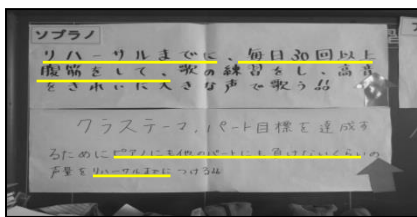 ソプラノ
リハーサルまでに、毎日30回以上
腹筋をして、歌の練習をし、高音
をきれいに大きな声で歌う品
クラステーマ、パート目標を達成す
るためにピアノにも他のパートにも負けないくらいの
声量をリハーサルまでにつける